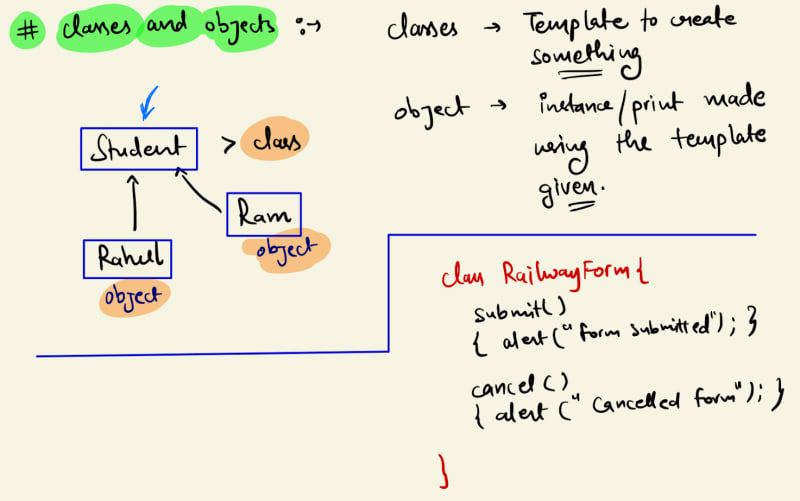 # classes and objects :→
classes → Template to create
something
object → instance/print made
using the template
given.
Student > class
Ram
object
Rahul
object
class RailwayForm{
submit()
{ alert("form submitted"); }
cancel()
{ alert("Cancelled form"); }
}